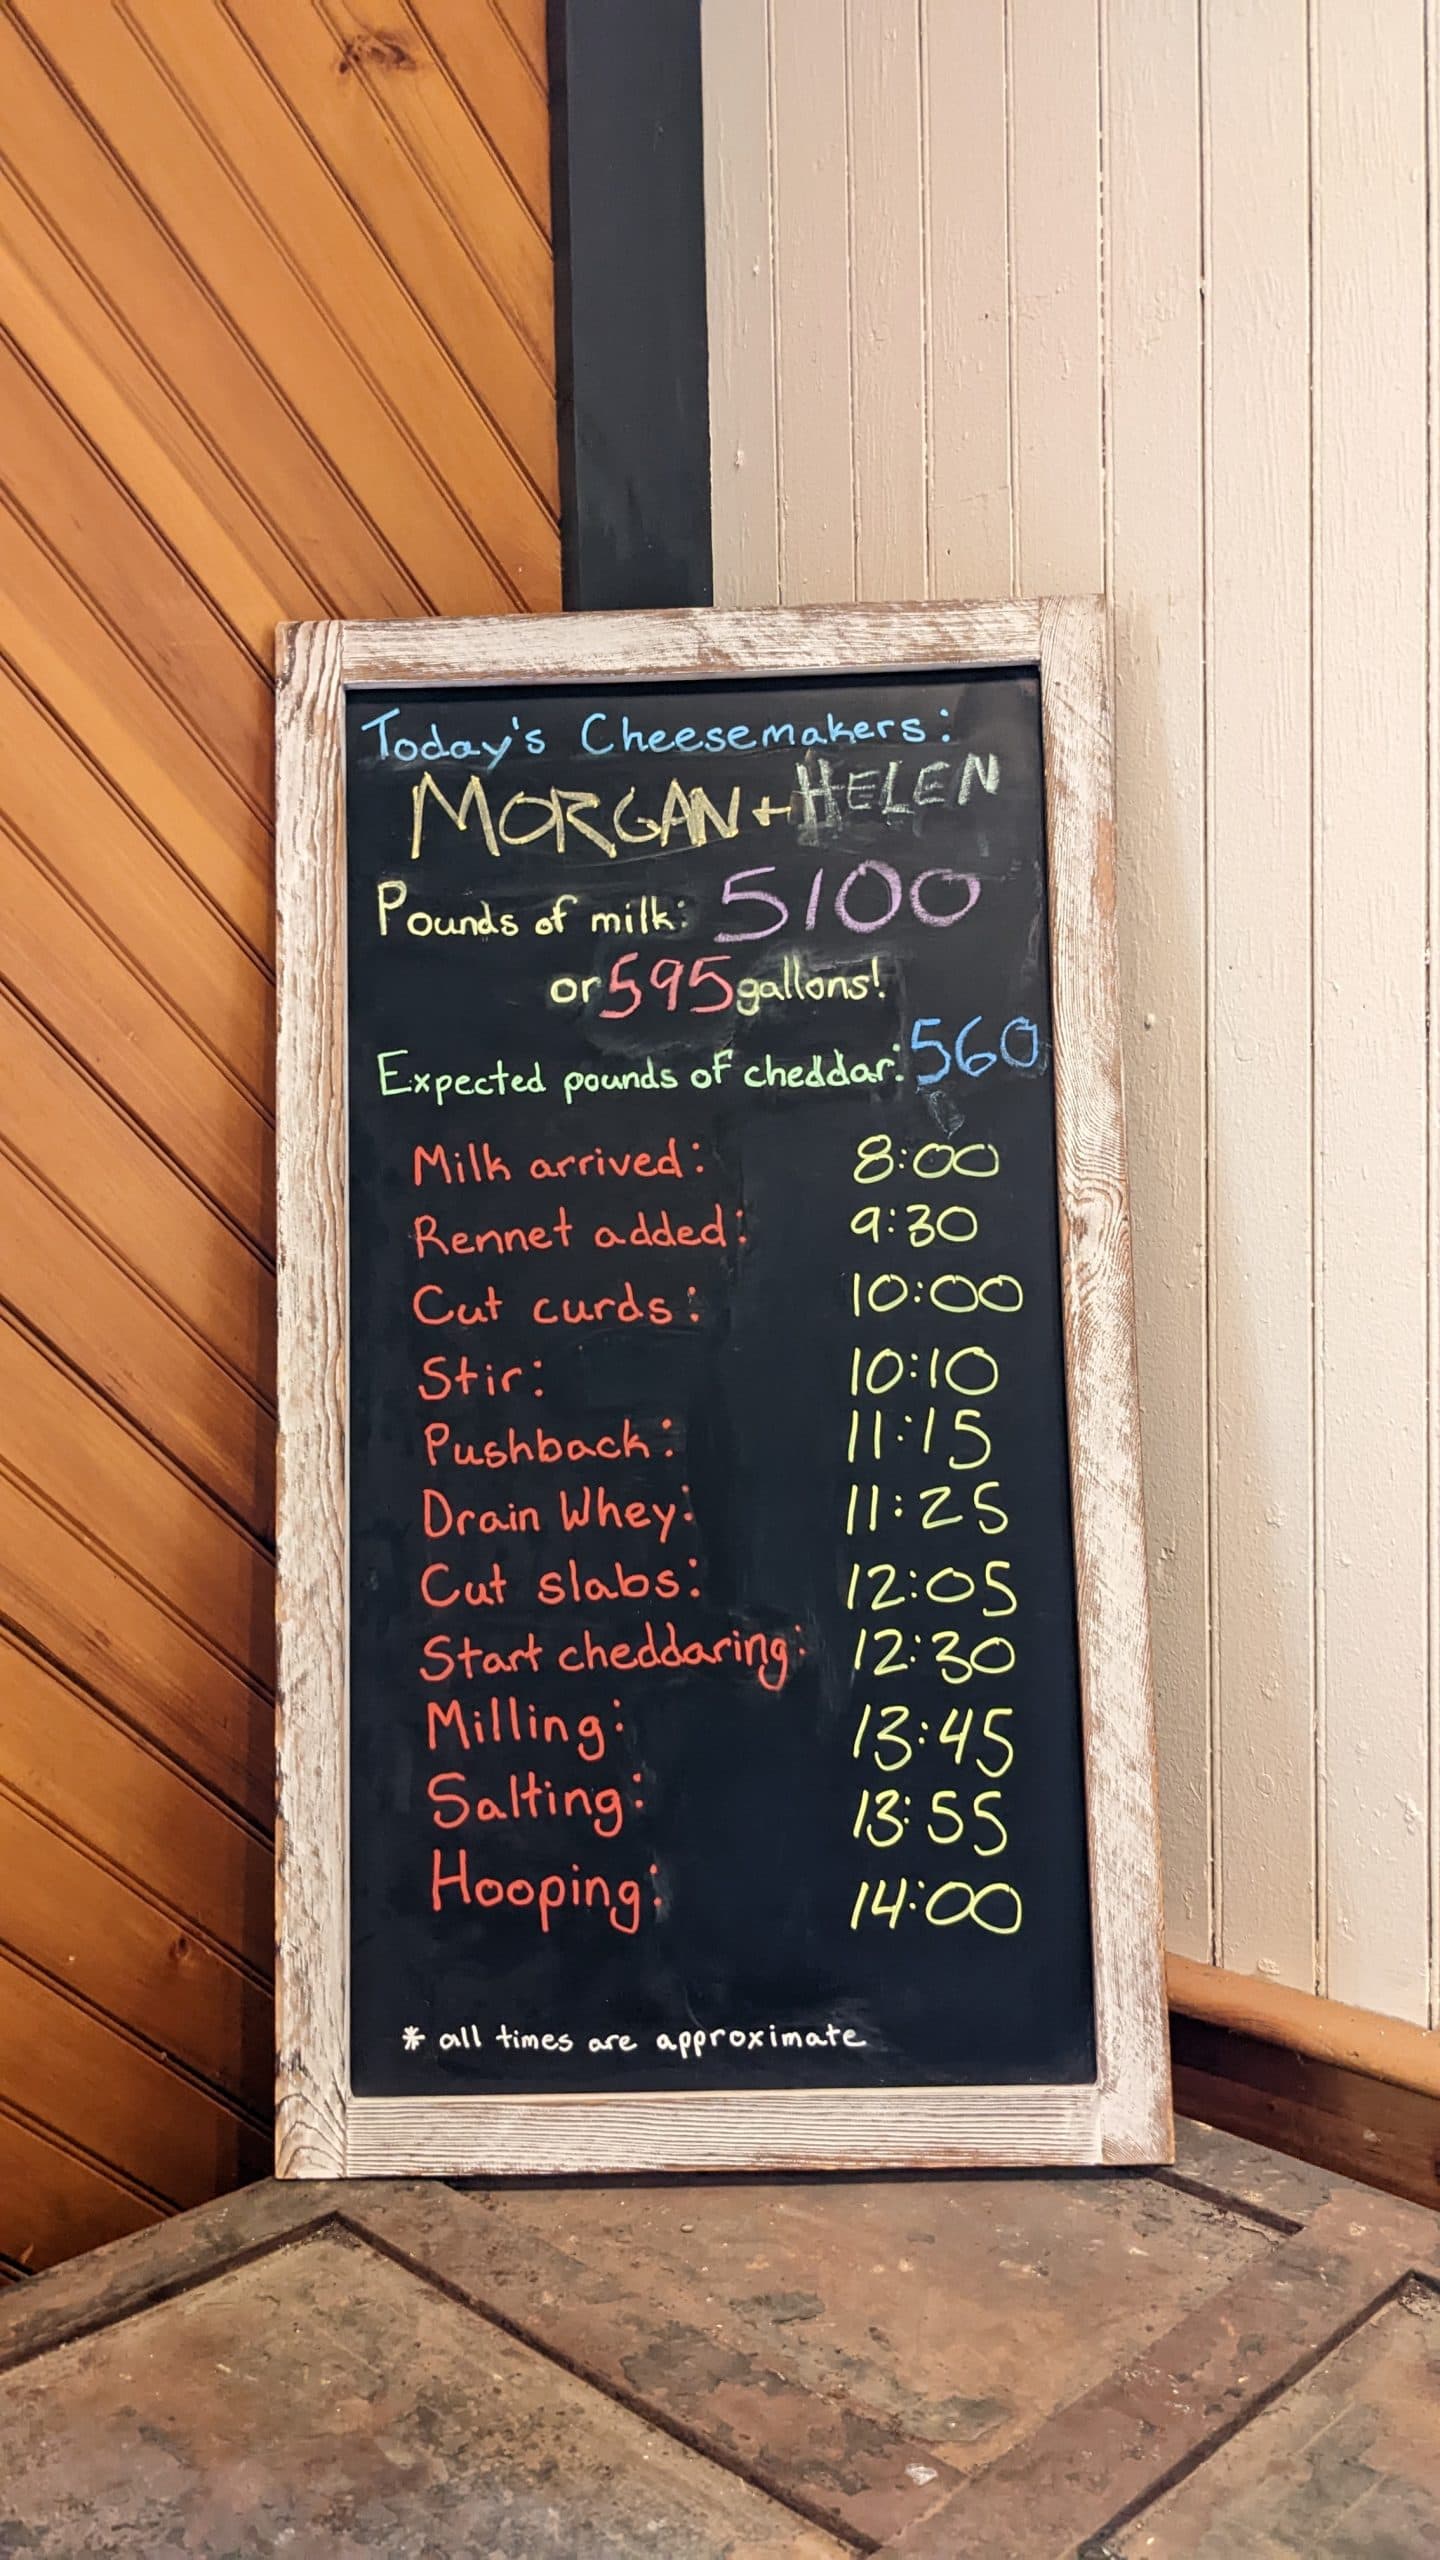 Today's Cheesemakers:
MORGAN + HELEN
Pounds of milk: 5100
or 595 gallons!
Expected pounds of cheddar: 560
Milk arrived: 8:00
Rennet added: 9:30
Cut curds: 10:00
Stir: 10:10
Pushback: 11:15
Drain Whey: 11:25
Cut slabs: 12:05
Start cheddaring: 12:30
Milling: 13:45
Salting: 13:55
Hooping: 14:00
* all times are approximate